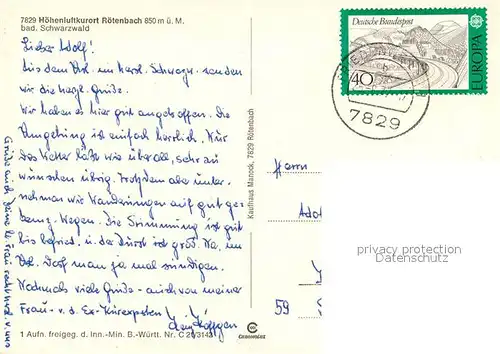 7829 Höhenluftkurort Rötenbach 850 m ü. M.
bad. Schwarzwald
Lieber Adolf!
Aus dem Url. im herrl. Schwarzw. senden
wir die herzl. Grüße.
Wir haben es hier gut angetroffen. Die
Umgebung ist einfach herrlich. Nur
das Wetter läßt wie überall, sehr zu
wünschen übrig. Trotzdem aber unter-
nehmen wir Wanderungen auf gut ge-
Wegen. Die Stimmung ist gut
bis u. der Durst ist groß. Na, im
Url. darf man ja mal sündigen.
Nochmals viele Grüße - auch von meiner
Frau - v. d. Ex-
1 Aufn. freigeg. d. Inn.-Min. B.-Württ. Nr. C 20/3143
Grüße auch Deine lb. Frau recht herzl. v. uns
Kaufhaus Manock, 7829 Rötenbach
CEKADEWERT
Deutsche Bundespost
40
EUROPA
7829
Herrn
Adol
59
privacy protection
www.oldthing.de